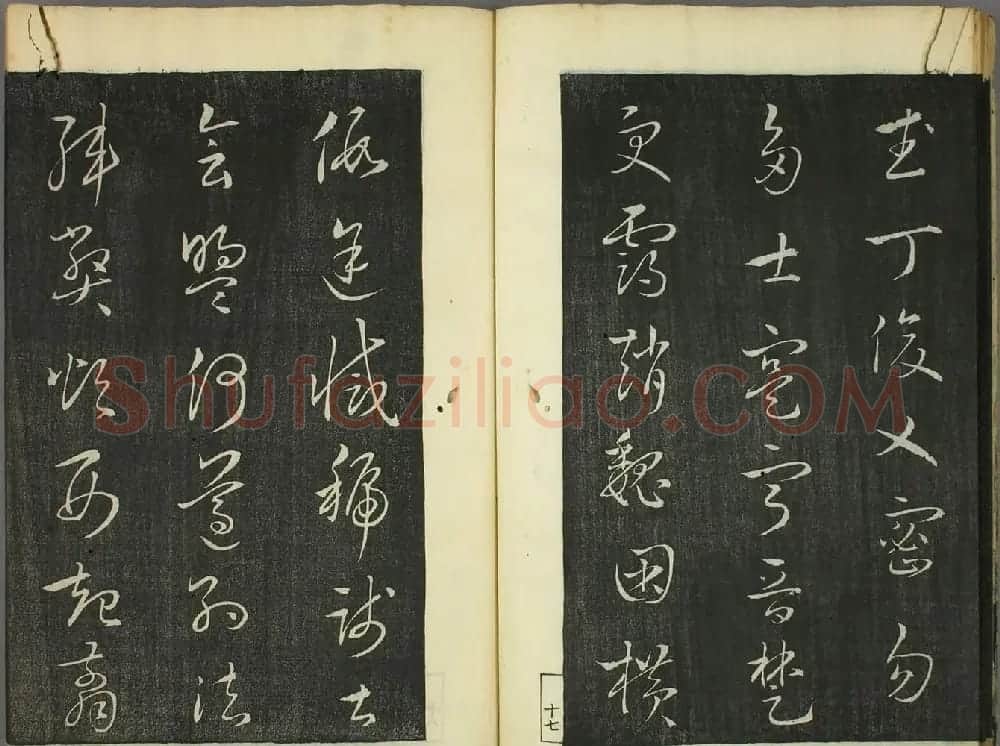 武丁俊乂密勿
多士寔寧晉楚
更霸趙魏困橫
假途滅虢踐土
會盟何遵約法
韓弊煩刑起翦
十七
Shufaziliao.COM